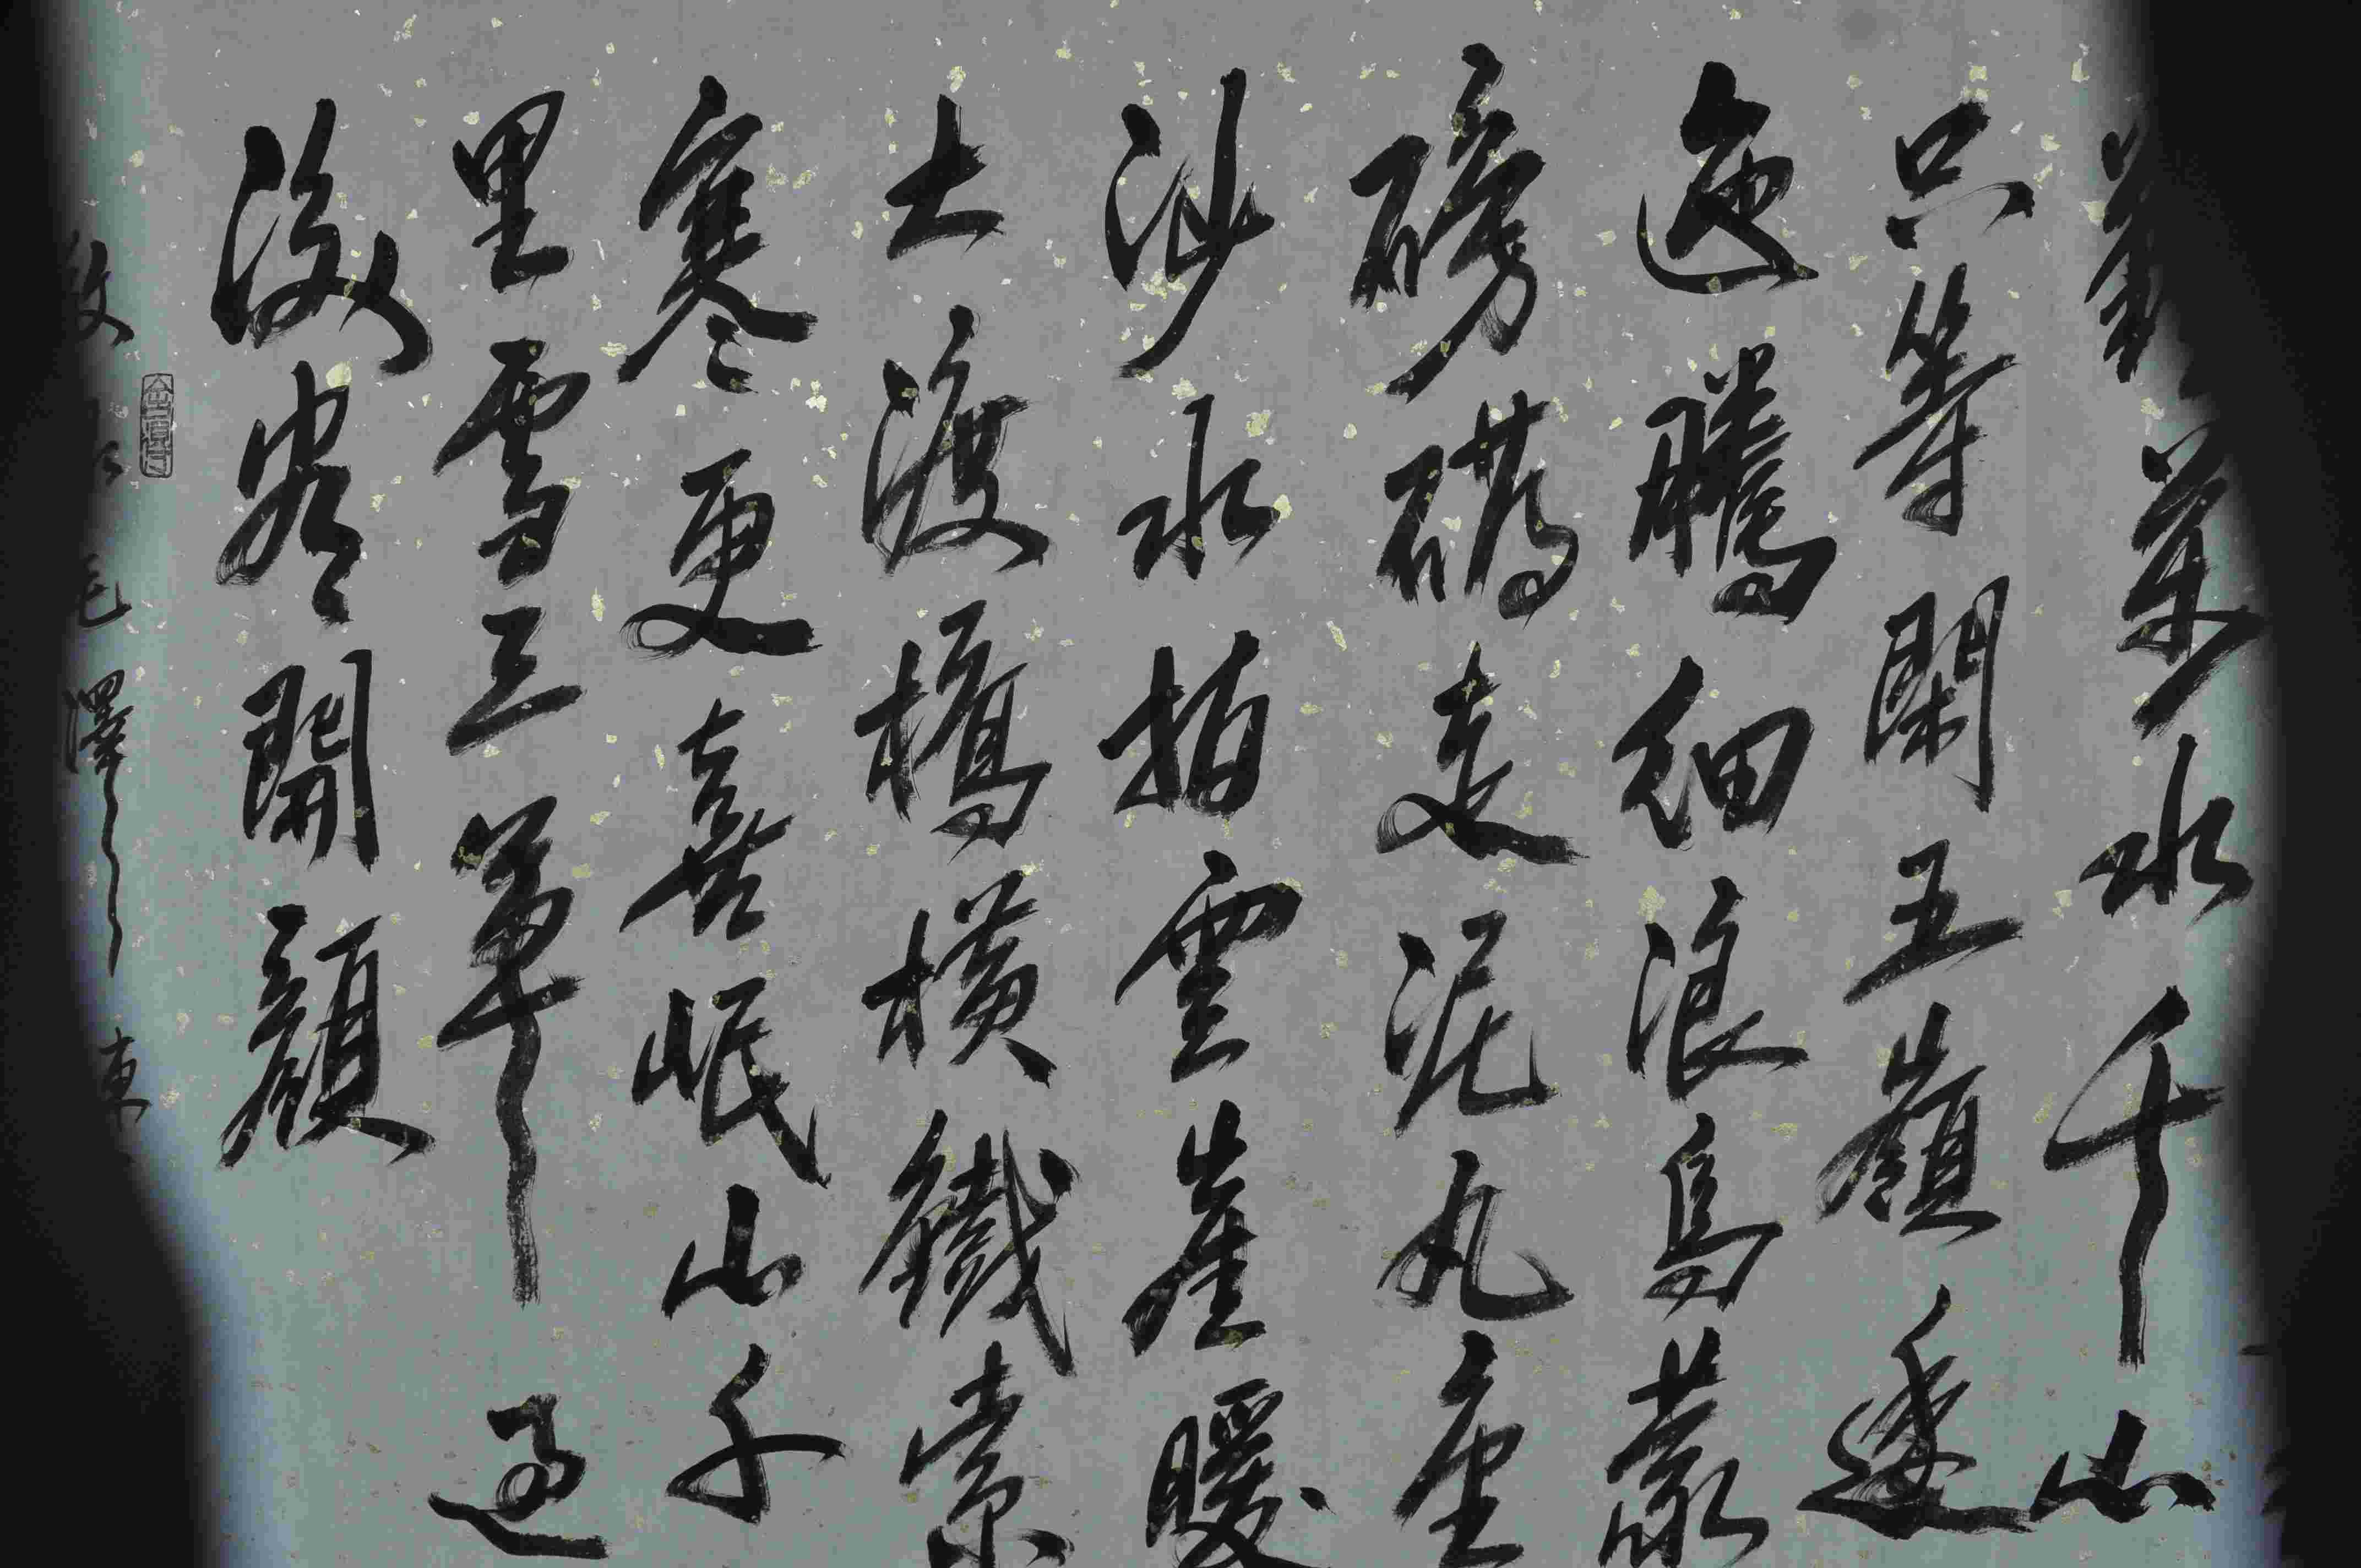 萬水千山
只等閑五嶺逶
迤騰細浪烏蒙
磅礴走泥丸金
沙水拍雲崖暖
大渡橋橫鐵索
寒更喜岷山千
里雪三軍過
後盡開顏
毛澤東